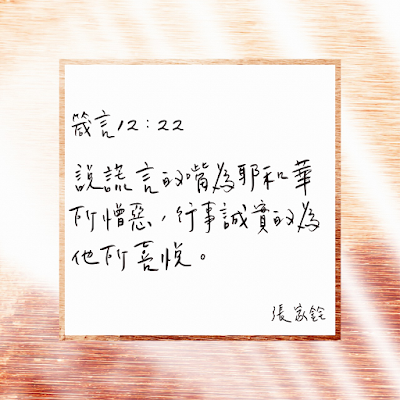 箴言12:22
說謊言的嘴為耶和華
所憎惡,行事誠實的為
他所喜悅。
張家銓